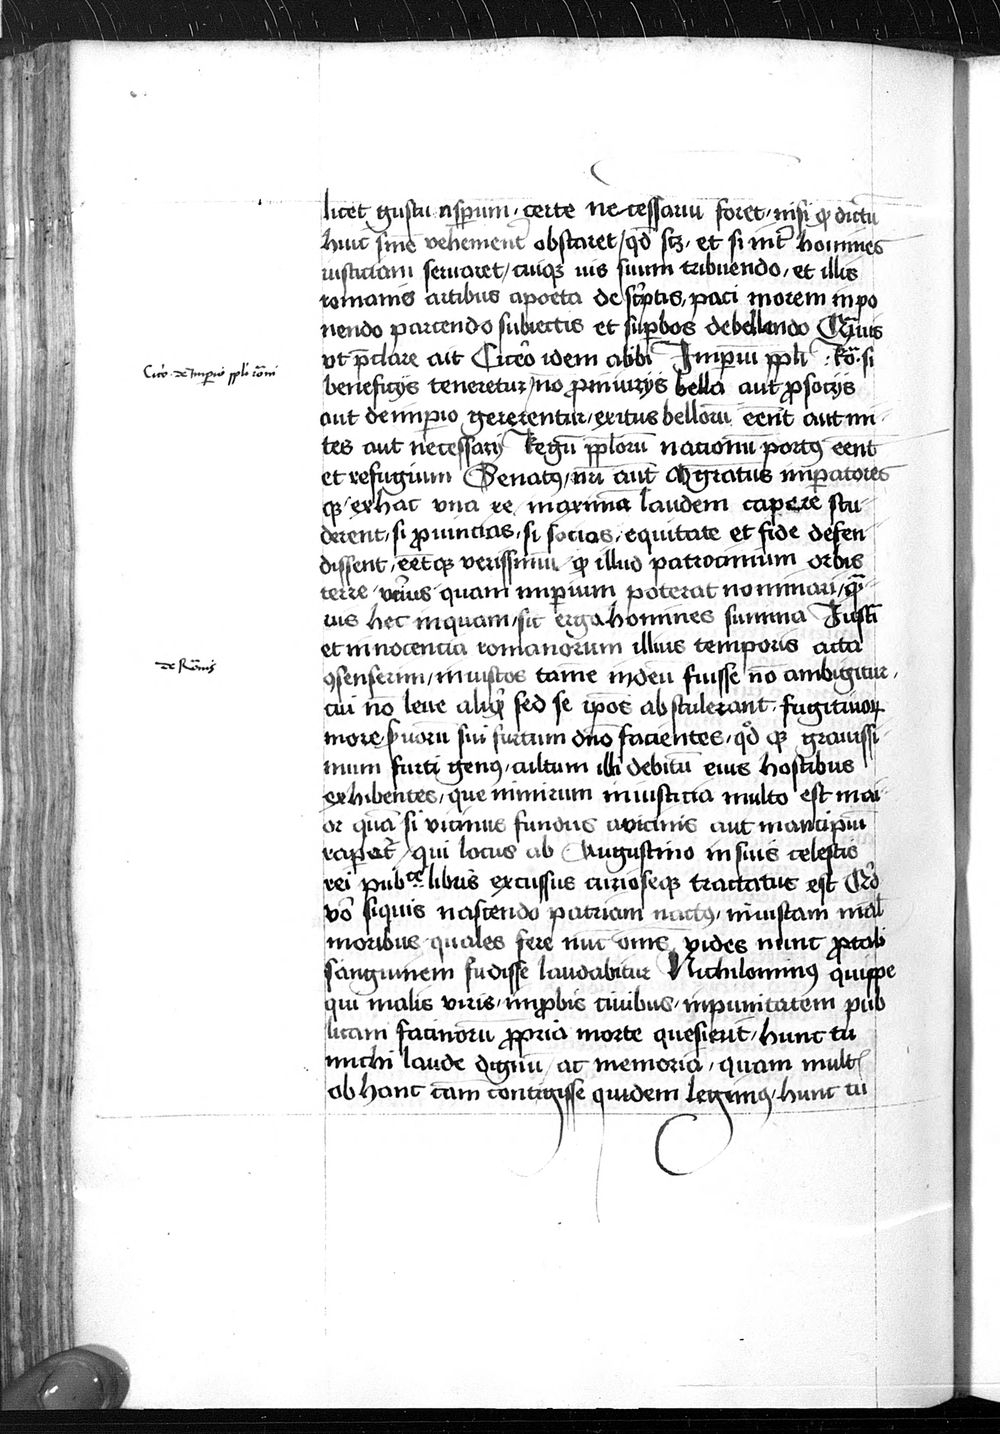 licet gustu asperum, certe necessariū foret, nisi ꝙ dictū
huic sine vehement᷑ obstaret, qd̄ scꝫ, et si int̄ homines
iusticiam seruaret, cuiqꝫ ius suum tribuendo, et illis
romanis artibus apoeta descͥptis, paci morem inpo
nendo parcendo subiectis et suꝑbos debellando
vt p̄clare ait Cicero idem alibi Imperiū ppli Ro. si
beneficijs teneretur, nō ꝓ iniurijs bella aut ꝓ socijs
aut de inꝑio gererentur, exitus bellorū eēnt aut mi
tes aut necessarij Regū pplorū nationū portꝰ eēnt
et refugium Senatꝰ, nr̄i aut magratus inꝑatores
qꝫ, ex hac vna re maxima laudem capere stu
derent, si ꝓuincias, si socias, equitate et fide defen
dissent, eētqꝫ verissimū ꝙ illud patrocinium orbis
terre verius quam inꝑium poterat nominari, qͣ
uis hec inquam, sit erga homines summa Justi
et innocencia romanorum illius temporis acta
ꝯsenserim, iniustos tamē indeū fuisse nō ambigitur,
cui nō leue aliqͥd sed se ip̄os abstulerant, fugitiuoꝝ
more ẜuorū sui furtum dn̄o facientes, qd̄ qꝫ grauissi
mum furti genꝰ, cultum illi debitū eius hostibus
exhibentes, que nimirum iniusticia multo est mai
or quā si vicinus fundus a vicinis aut mancipiū
raperet᷑, qui locus ab Augustino in suis celestis
rei pub^ce libris excussus curioseqꝫ tractatus est Qd̄
vō siquis nascendo patriam nactꝰ, iniustam mal
moribus quales fere nūc om̄s vides nunc ꝓ tali
sanguinem fudisse laudabitur Nichilominꝰ quippe
qui malis viris, inꝓbis ciuibus, inpunitatem pub
licam facinorū ꝓpria morte quesierūt, hunc tu
michi laude dignū, ac memoria, quam mult᷑
ob hanc cām contigisse quidem legimꝰ, hunc tū
Cicro de Imperio ppli romi
de Romis